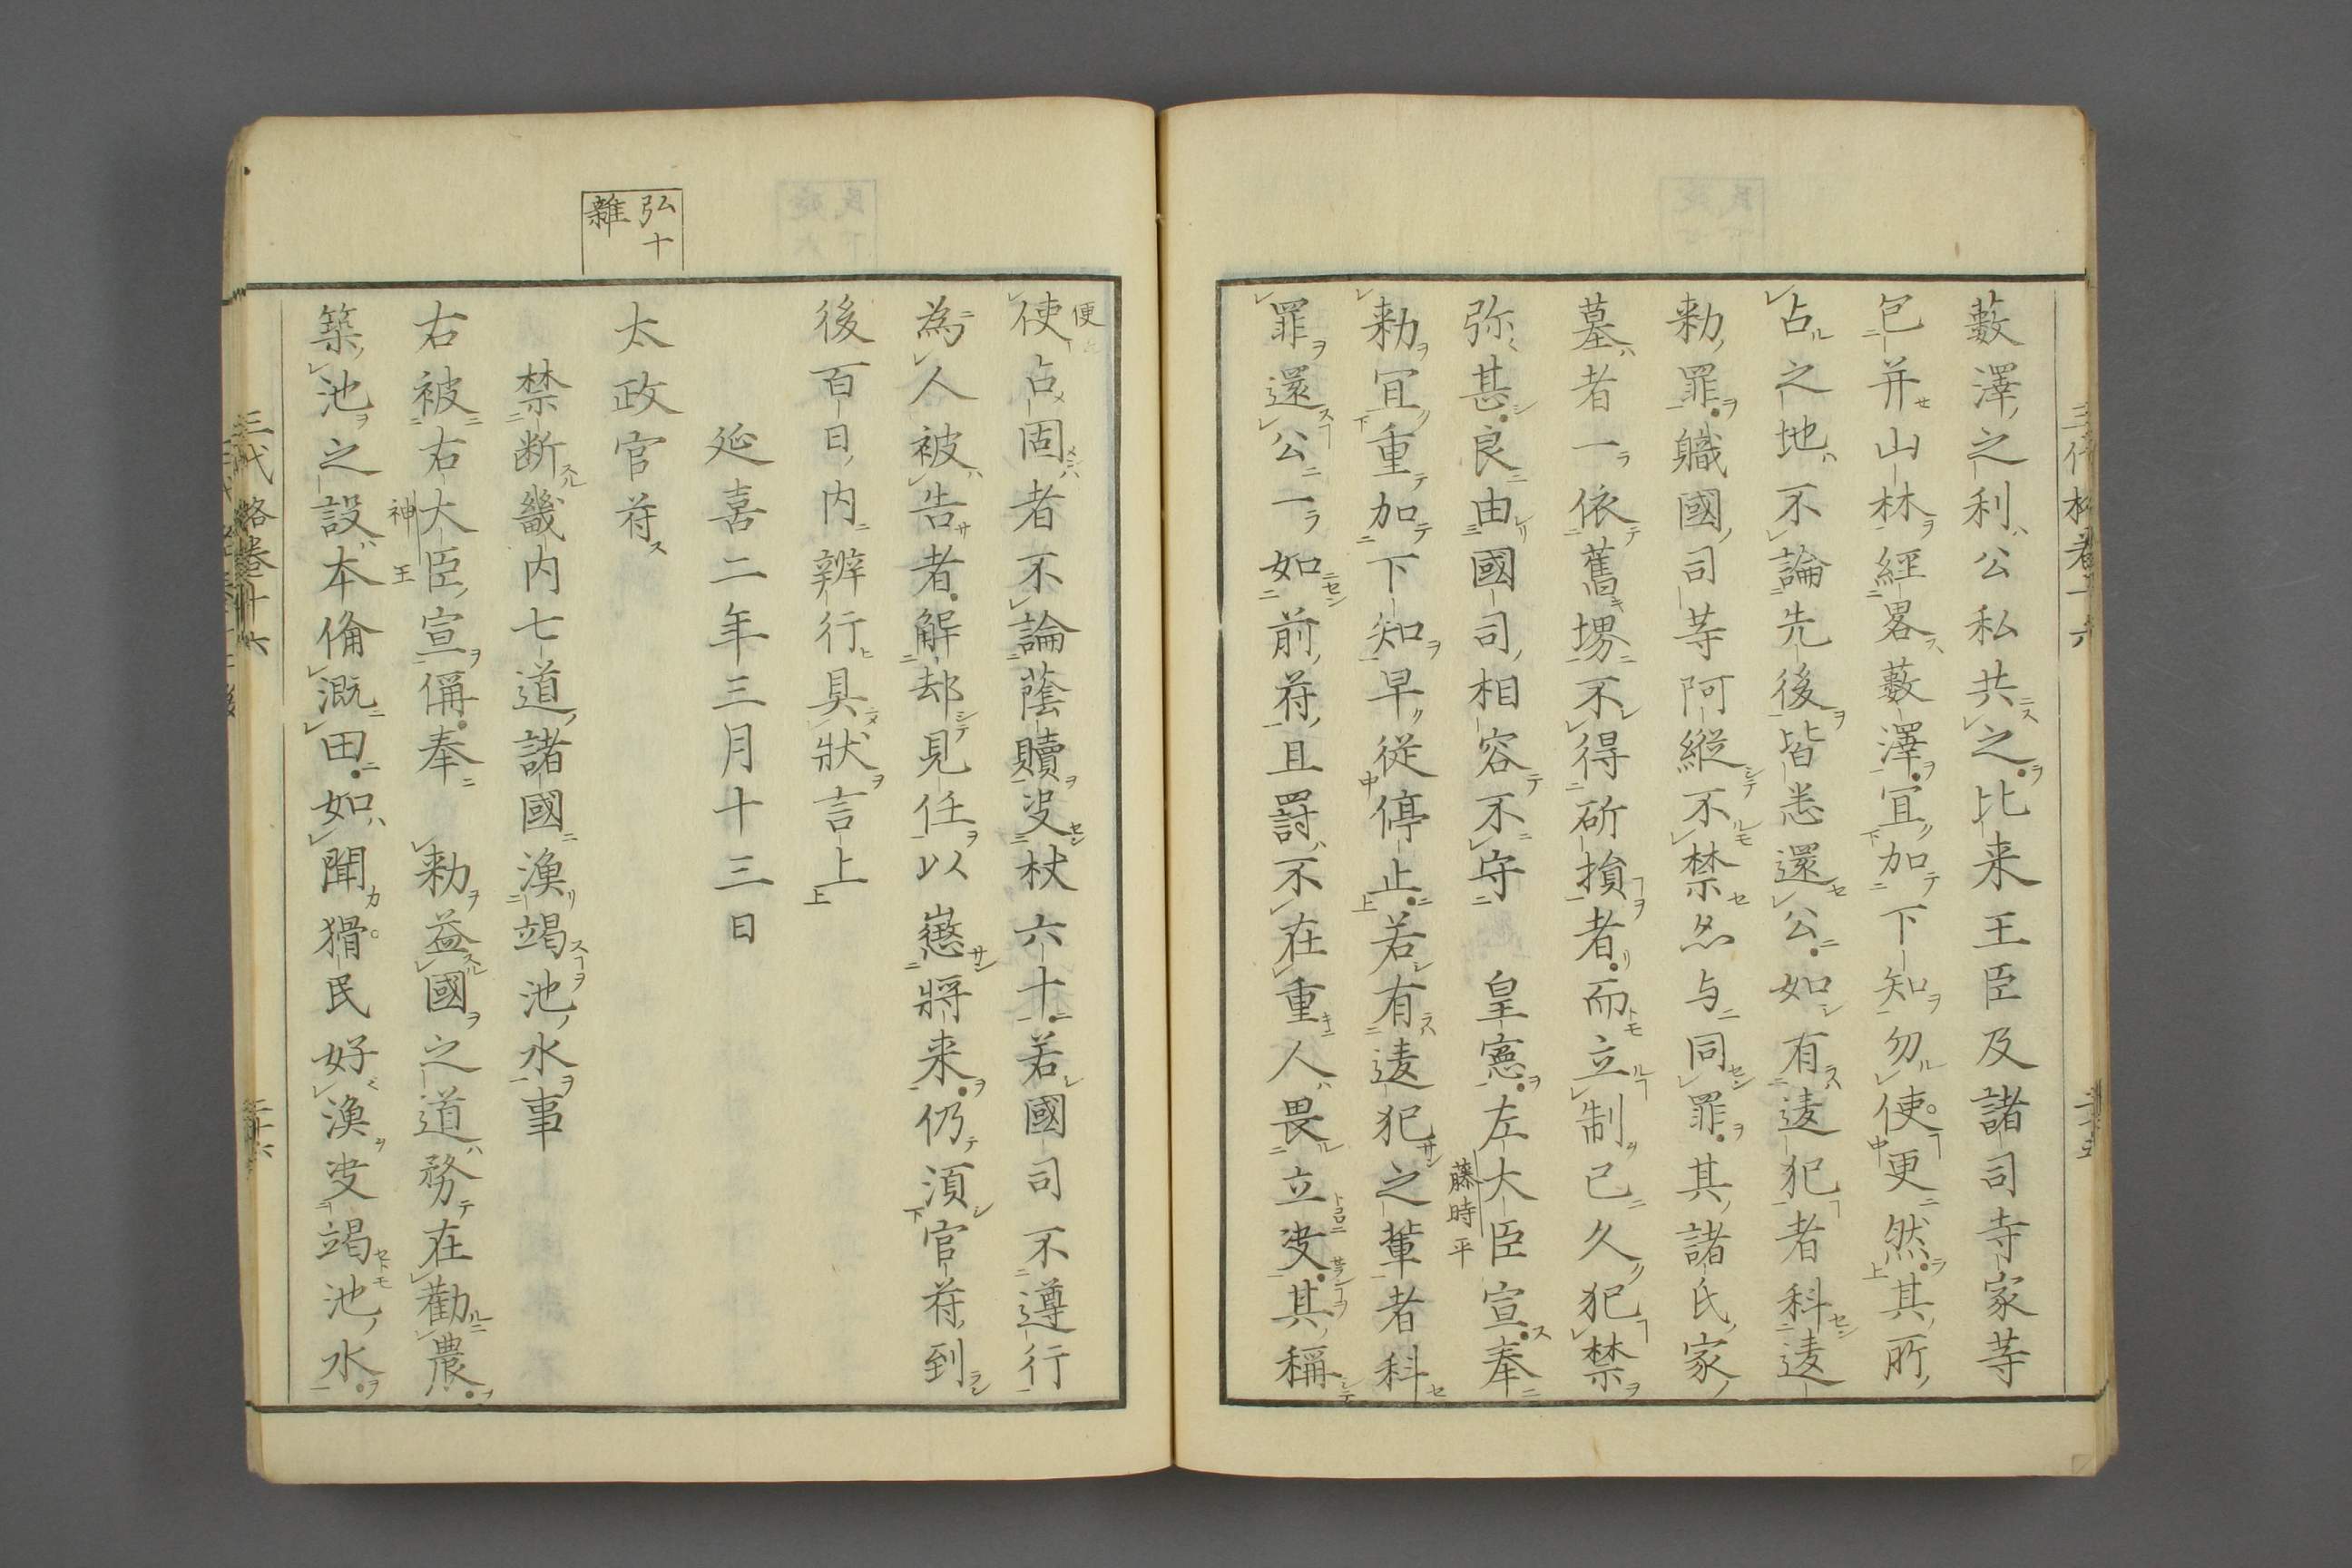 藪澤之利公私共之比来王臣及諸司寺家䓁
包并山林經畧藪澤宜加下知勿使更然其所
占之地不論先後皆悉還公如有違犯者科違
勅罪軄國司䓁阿縦不禁亦与同罪其諸氏家
墓者一依舊堺不得斫損者而立制已久犯禁
弥甚良由國司相容不守　皇憲左大臣宣奉
藤時平
勅宜重加下知早従停止若有違犯之輩者科
罪還公一如前符且罸不在重人畏立決其稱
便
使占固者不論蔭贖決杖六十若國司不遵行
為人被告者解却見任以懲將来仍湏官符到
後百日内辨行具狀言上
延喜二年三月十三日
弘十
雜
太政官符
禁断畿内七道諸國漁竭池水事
右被右大臣宣偁奉　勅益國之道務在勸農
神王
築池之設本備溉田如聞猾民好漁決竭池水
三代格卷十六
二十六